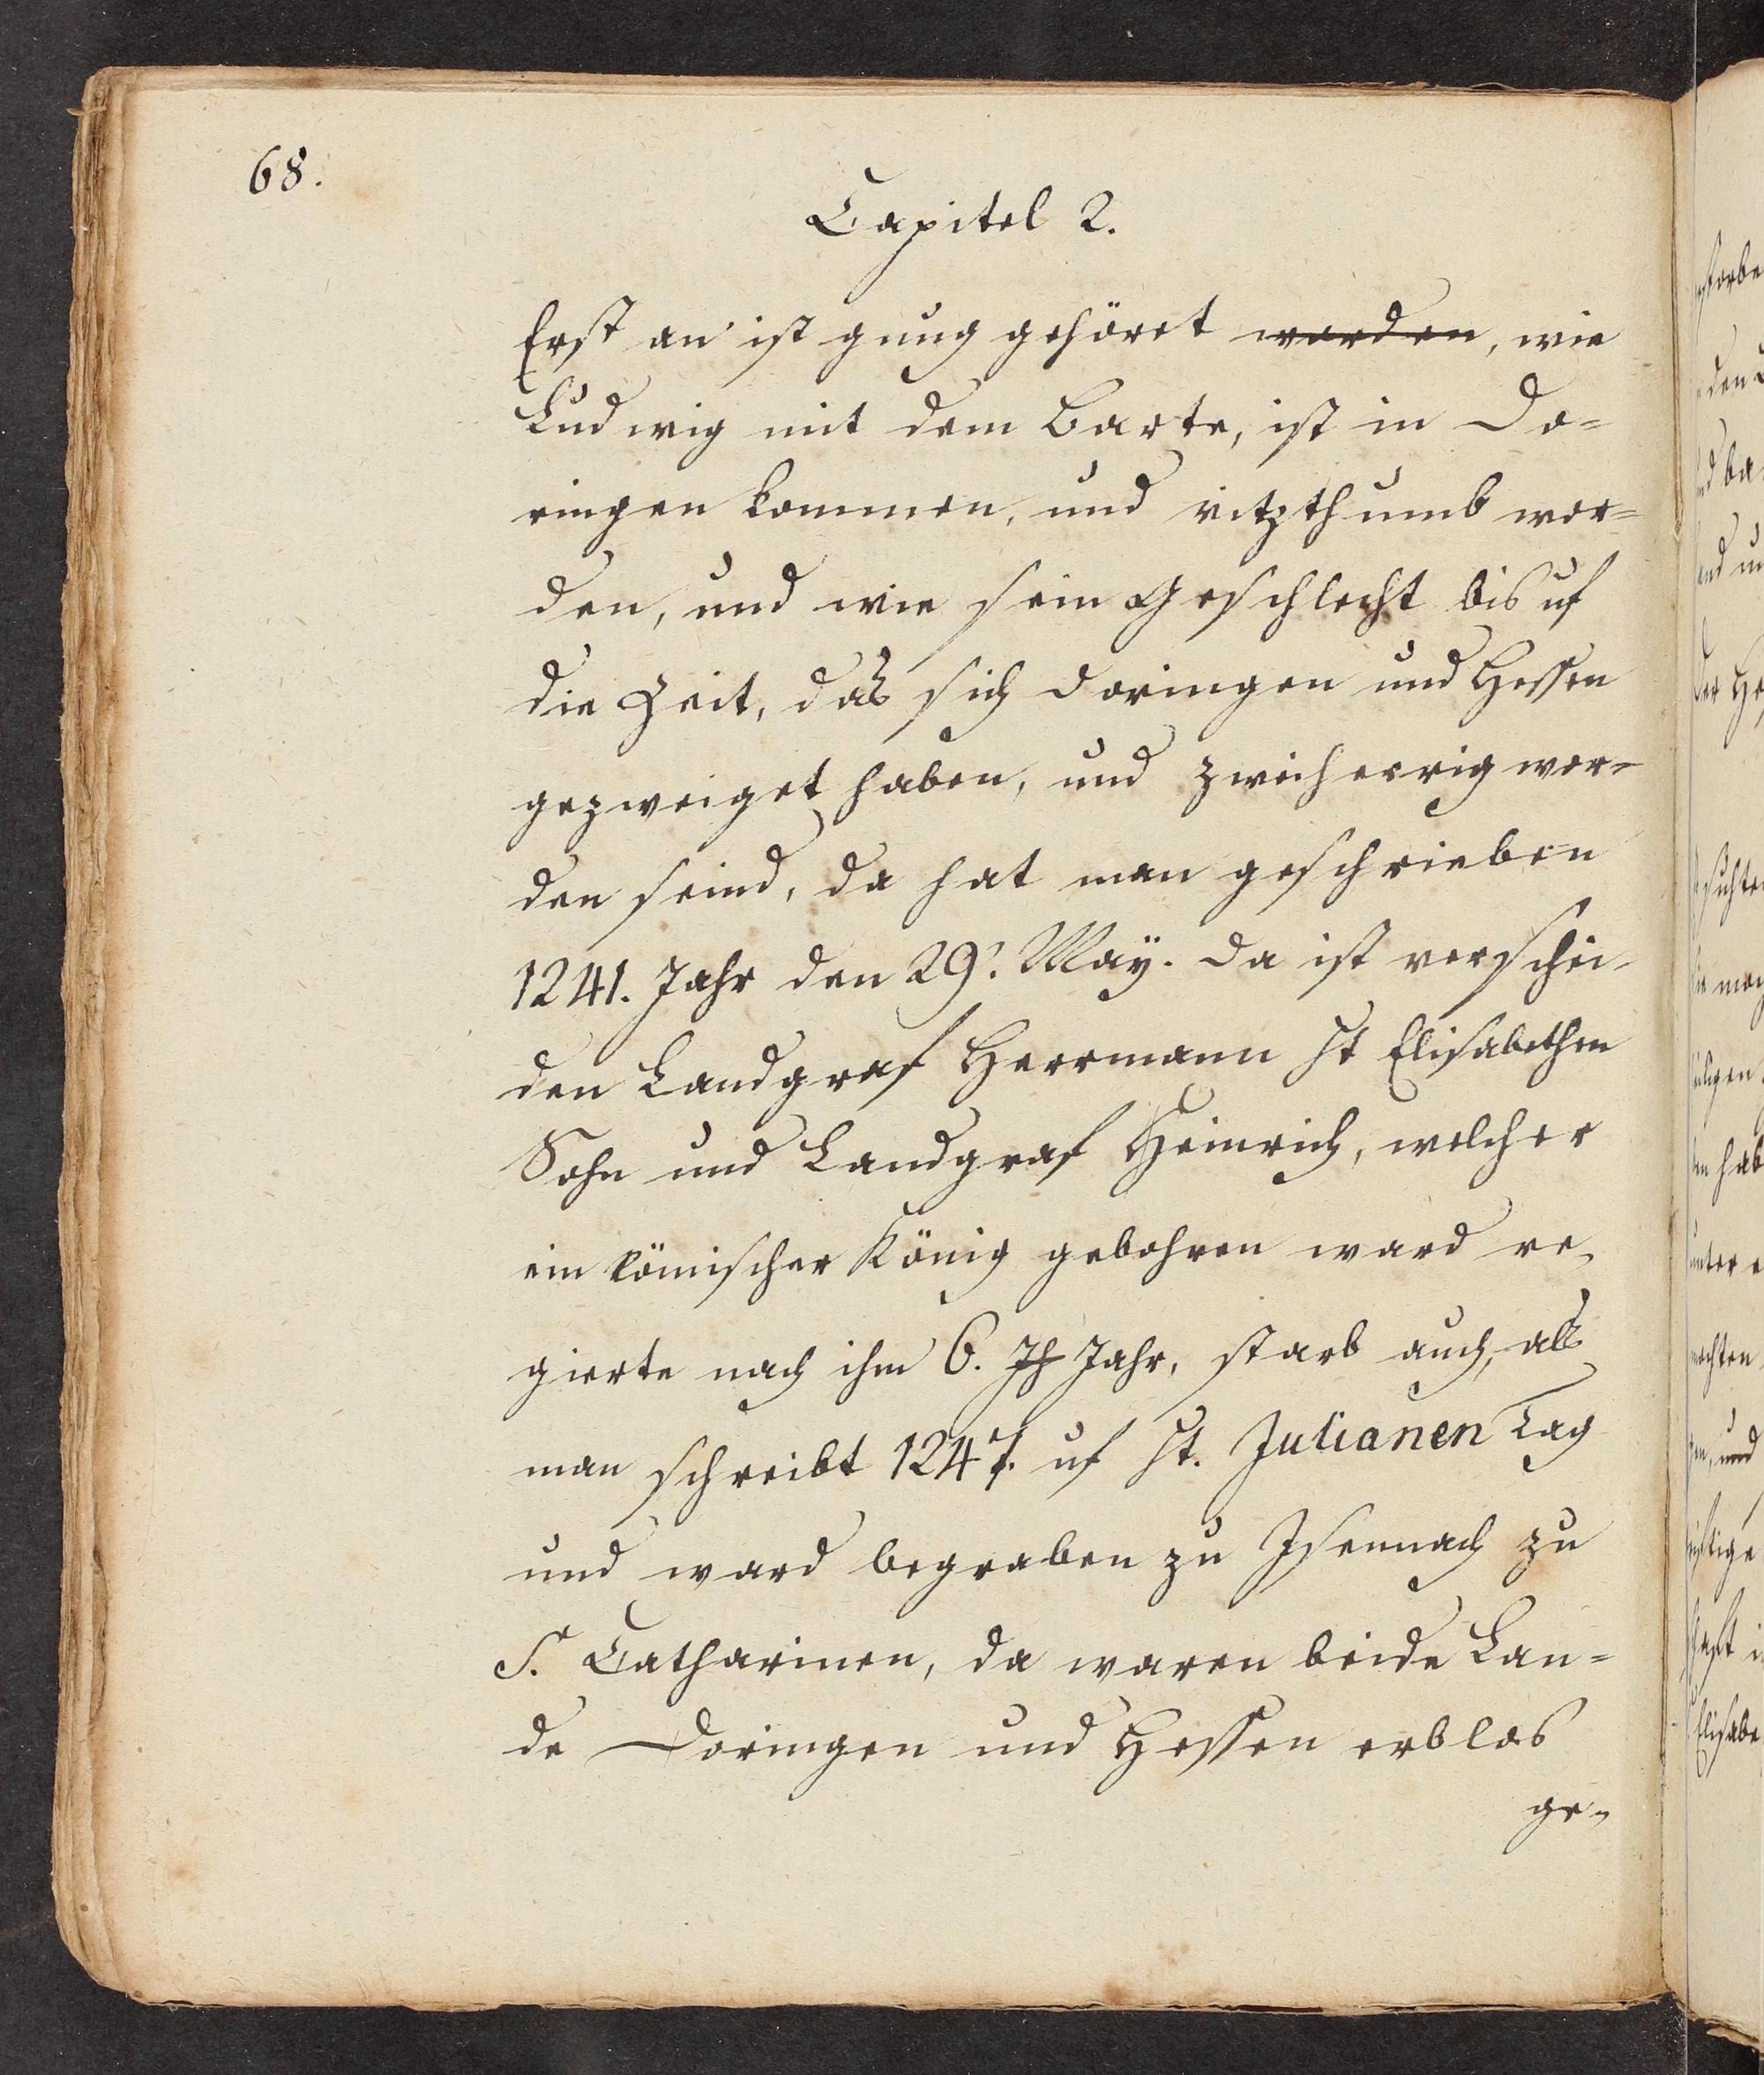 68.
Capitel 2.
Erst an ist gnug gehöret worden, wie
Ludwig mit dem Barte, ist in Do=
ringen kommen, und vitzthumb wor=
den, und wie sein Geschlecht bis uf
die Zeit, das sich Doringen und Hessen
gezweiget haben, und zweiherrig wor=
den seind, da hat man geschrieben
1241. Jahr den 29. May. Da ist verschei=
den Landgraf Herrmann St Elisabethen
Sohn und Landgraf Heinrich, welcher
ein Römischer König gebohren ward re=
gierte nach ihm 6. Jh Jahr, starb auch, als
man schreibt 1247. uf St. Julianen Tag
und ward begraben zu Isennach zu
S. Catharinen, da waren beide Lan=
de Doringen und Hessen erblos
ge=